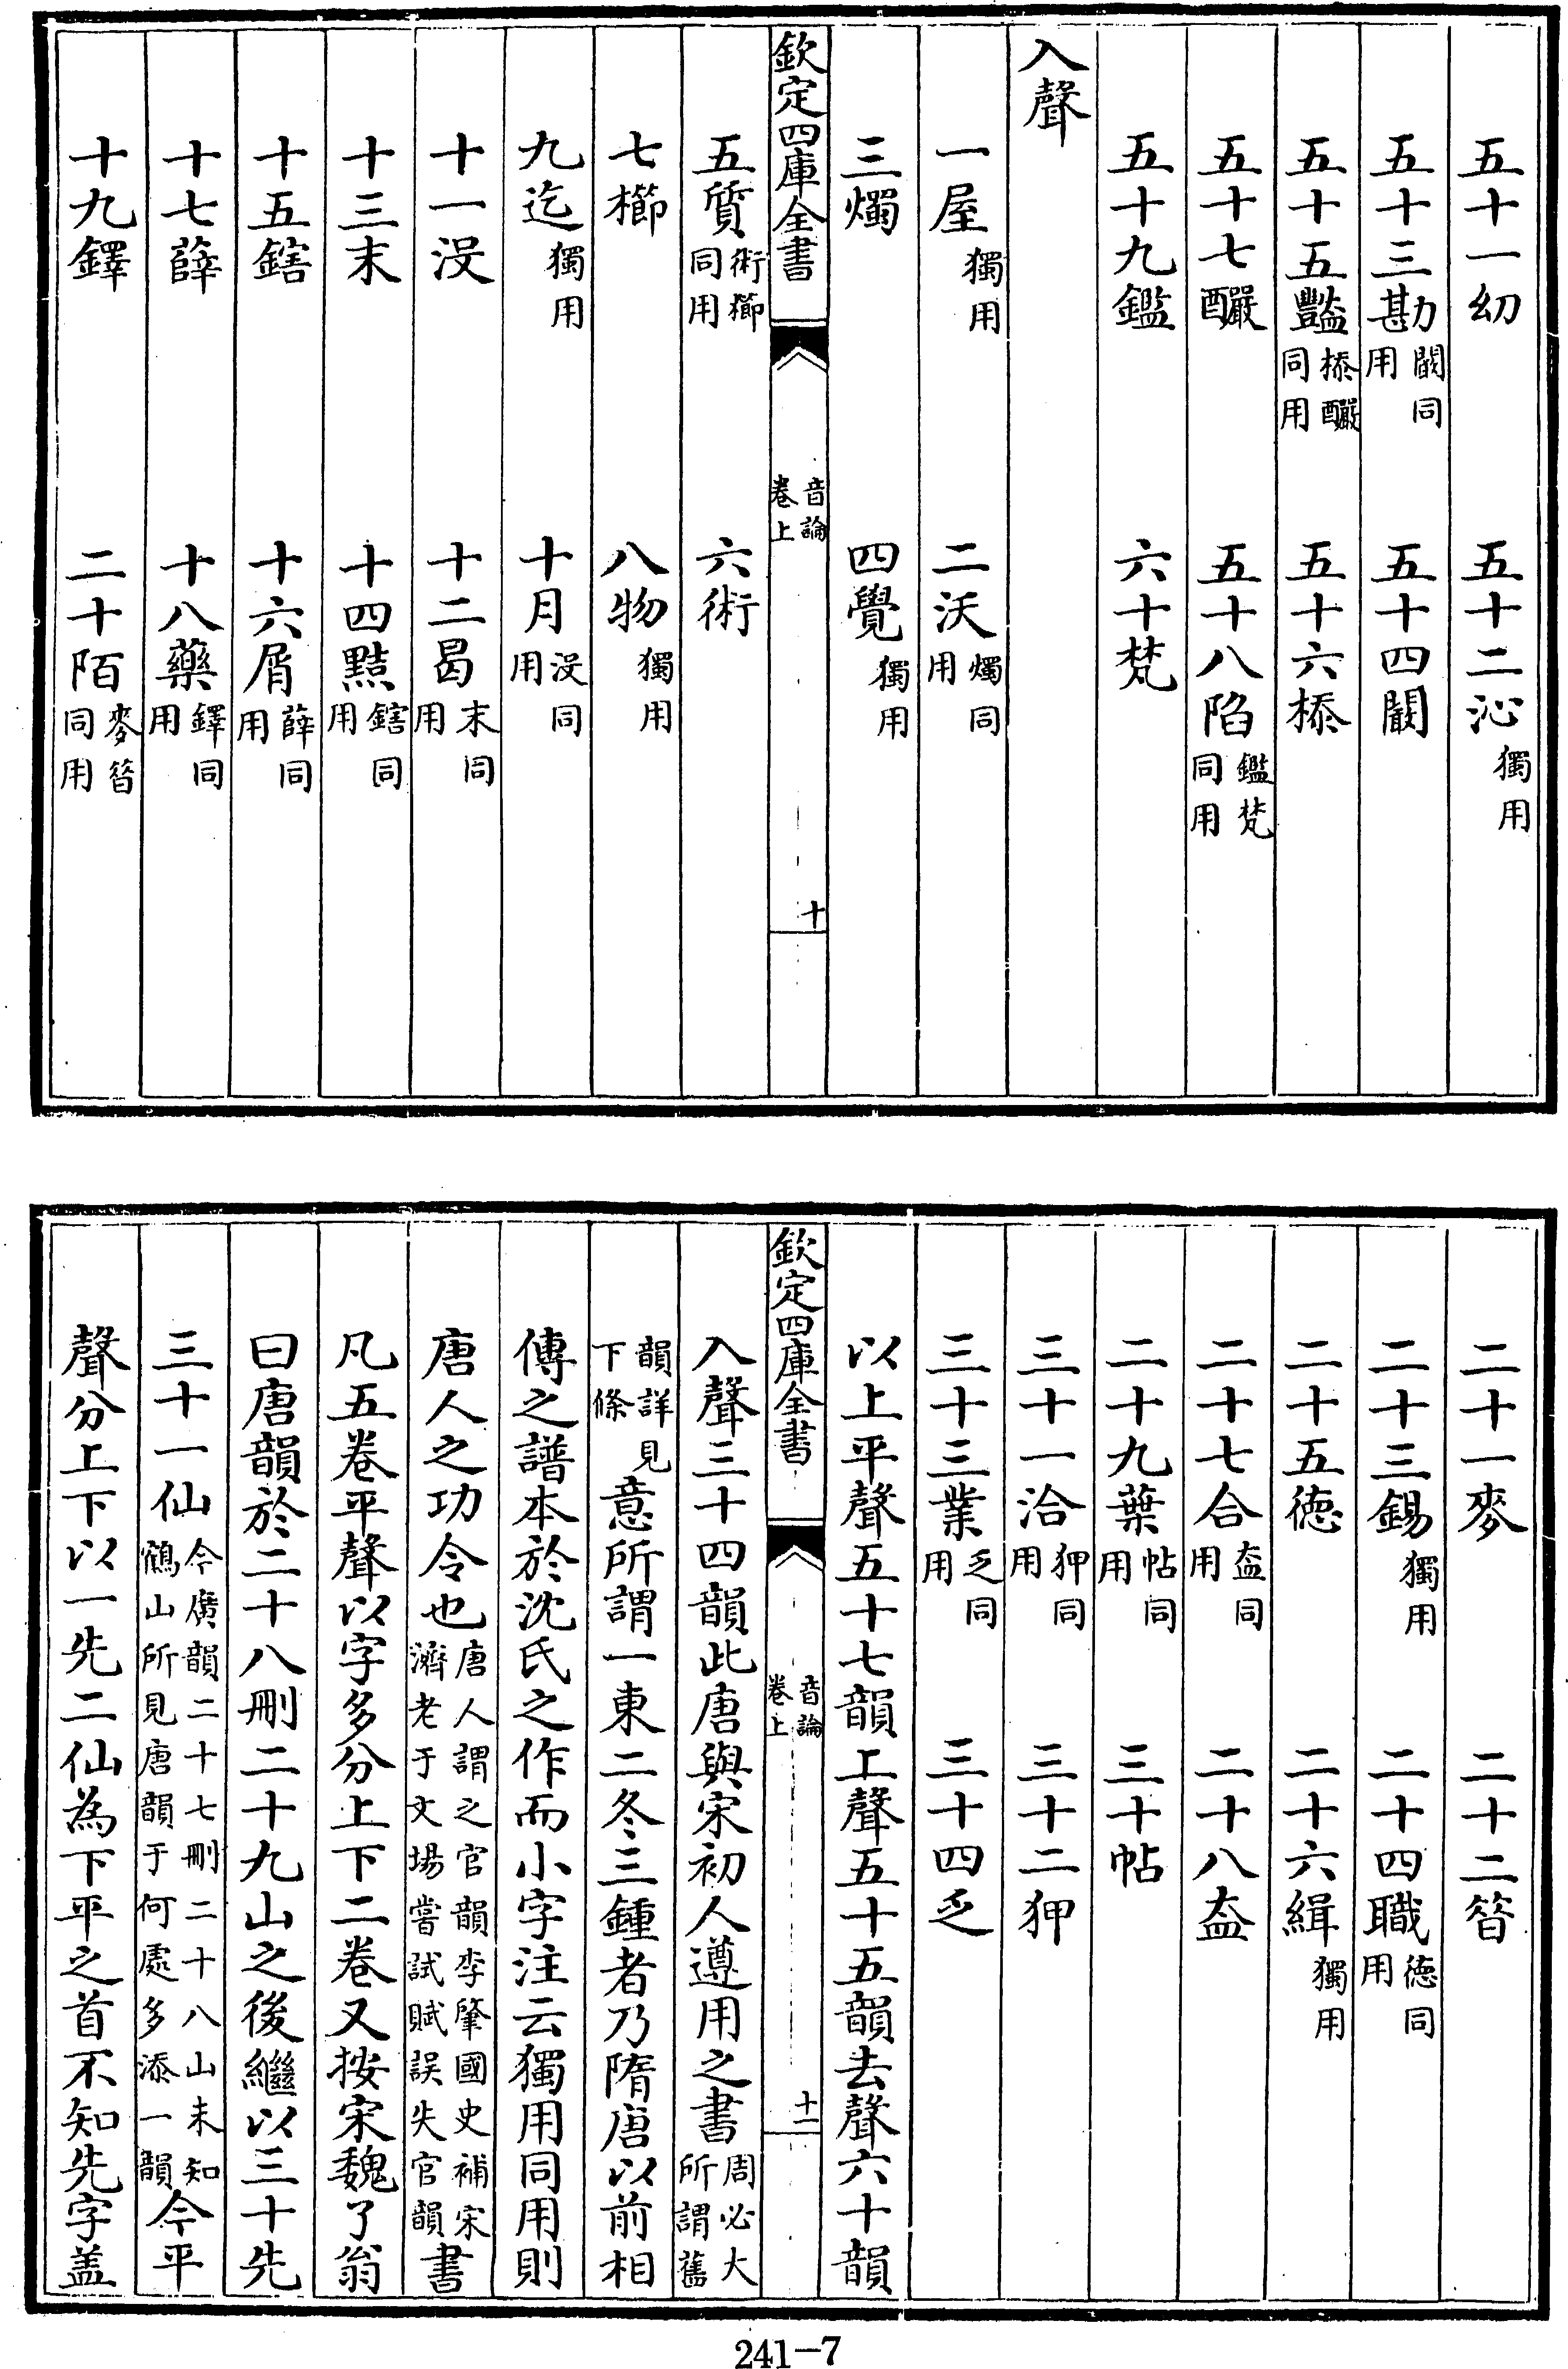 五十一幼 五十二沁獨用
五十三勘闞同用 五十四闞
五十五豔㮇釅同用 五十六㮇
五十七釅 五十八陷鑑梵同用
五十九鑑 六十梵
入聲
一屋獨用 二沃燭同用
三燭 四覺獨用
欽定四庫全書 音論卷上 十
五質術櫛同用 六術
七櫛 八物獨用
九迄獨用 十月沒同用
十一沒 十二曷末同用
十三末 十四黠鎋同用
十五鎋 十六屑薛同用
十七薛 十八藥鐸同用
十九鐸 二十陌麥昝同用
二十一麥 二十二昝
二十三錫獨用 二十四職德同用
二十五德 二十六緝獨用
二十七合盍同用 二十八盍
二十九葉帖同用 三十帖
三十一洽狎同用 三十二狎
三十三業乏同用 三十四乏
以上平聲五十七韻上聲五十五韻去聲六十韻
欽定四庫全書 音論卷上 十一
入聲三十四韻此唐與宋初人遵用之書周必大所謂舊
韻詳見下條意所謂一東二冬三鍾者乃隋唐以前相
傳之譜本於沈氏之作而小字注云獨用同用則
唐人之功令也唐人謂之官韻李肇國史補宋濟老于文場嘗試賦誤失官韻書
凡五卷平聲以字多分上下二卷又按宋魏了翁
曰唐韻於二十八刪二十九山之後繼以三十先
三十一仙今廣韻二十七刪二十八山未知鶴山所見唐韻于何處多添一韻今平
聲分上下以一先二仙為下平之首不知先字盖
241-7